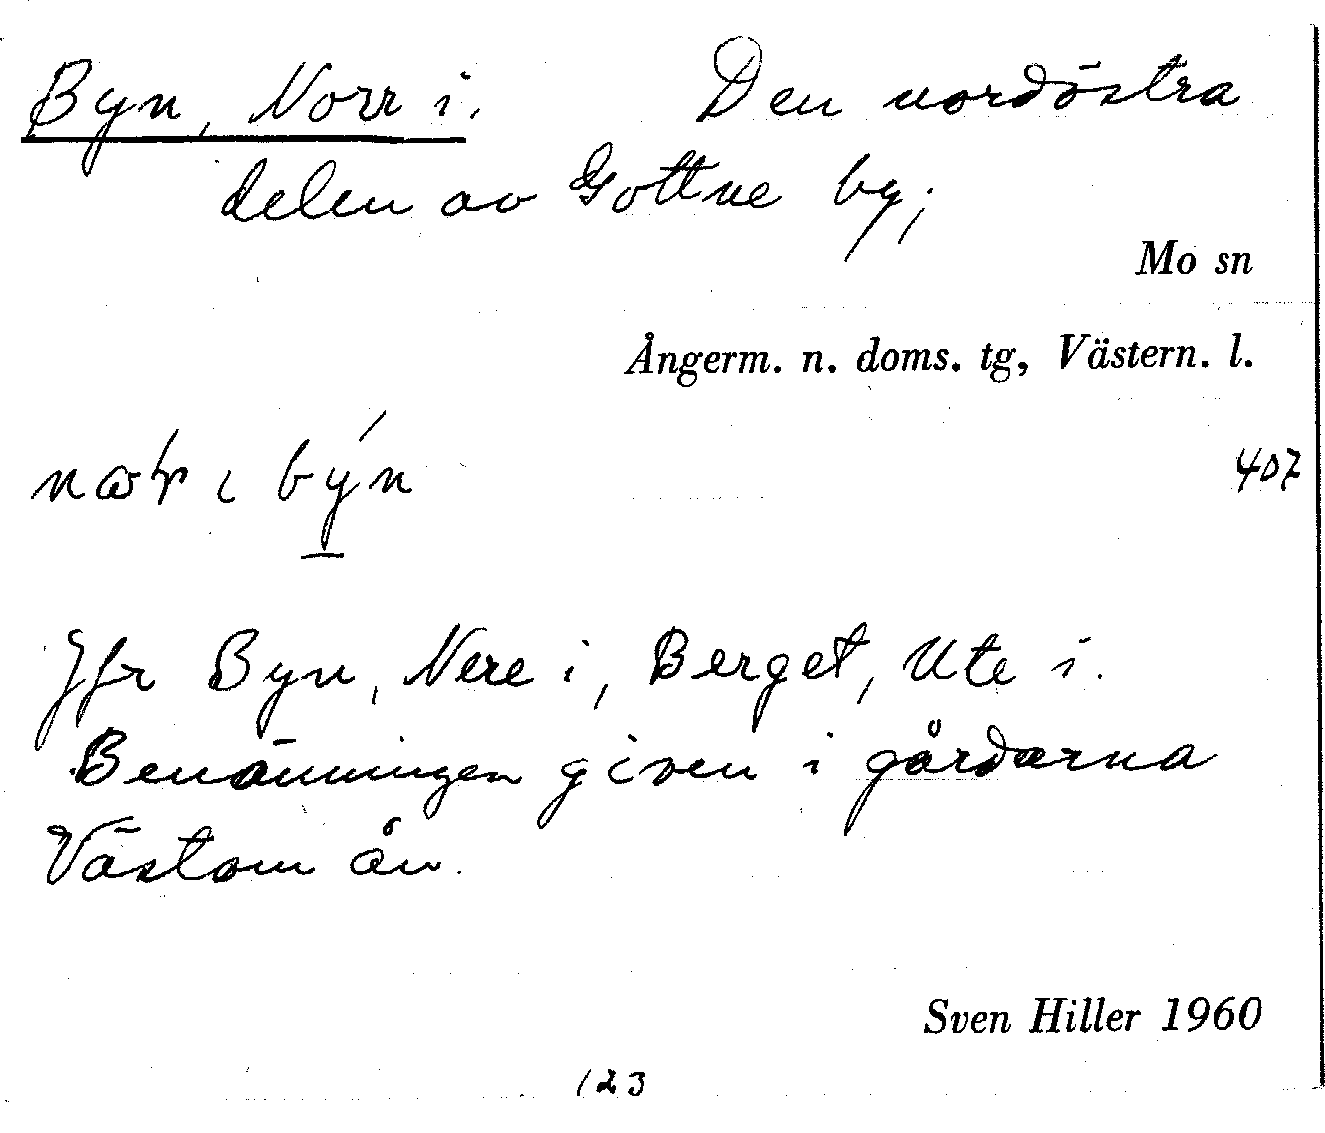 Byn, Norr i. Den nordöstra
delen av Gottne by;
Mo sn
Ångerm. n. doms. tg, Västern. l.
407
Jfr Byn, Nere i, Berget, Ute i.
Benämningen given i gårdarna
Västom ån.
Sven Hiller 1960
123